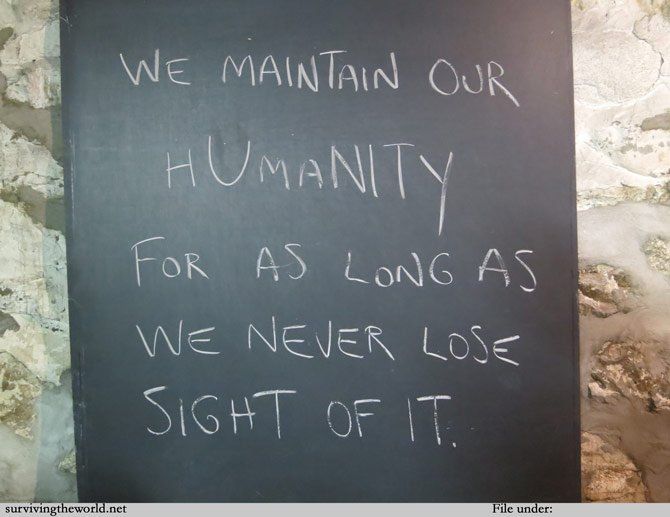 WE MAINTAIN OUR
HUMANITY
FOR AS LONG AS
WE NEVER LOSE
SIGHT OF IT.
survivingtheworld.net File under: